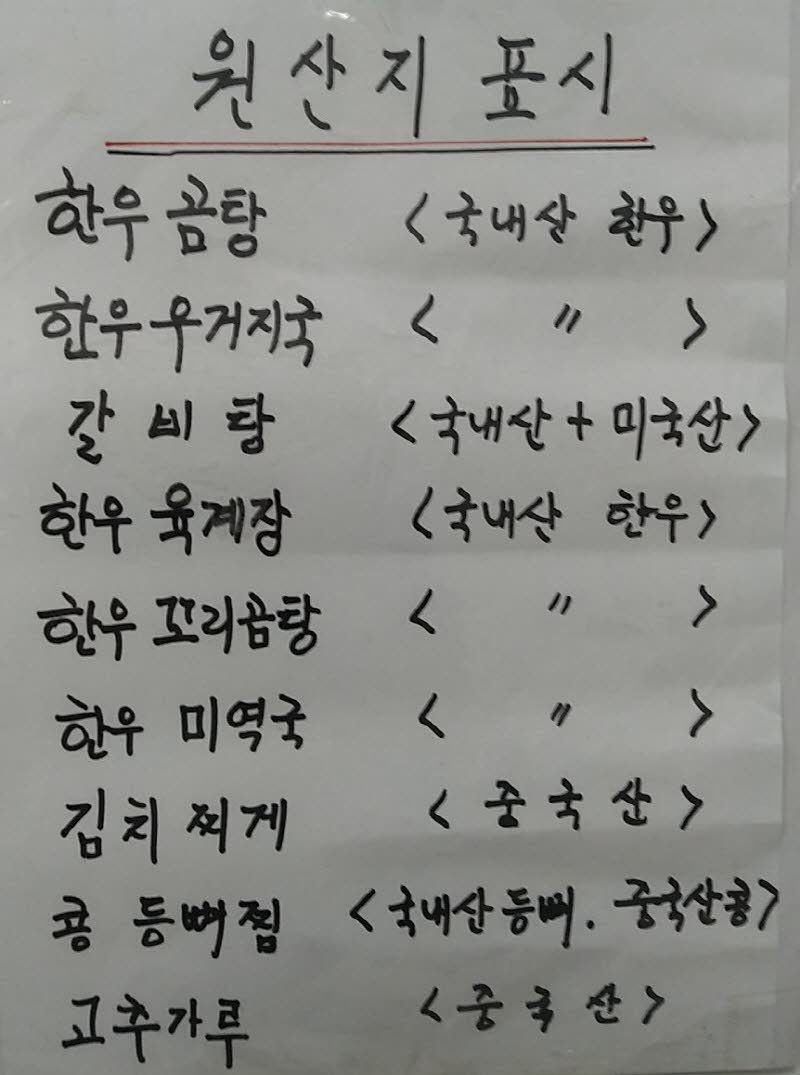 원산지 표시
한우 곰탕 <국내산 한우>
한우 우거지국 < 〃 >
갈비탕 <국내산 + 미국산>
한우 육계장 <국내산 한우>
한우 꼬리곰탕 < 〃 >
한우 미역국 < 〃 >
김치찌게 <중국산>
콩 등뼈찜 <국내산등뼈. 중국산콩>
고추가루 <중국산>